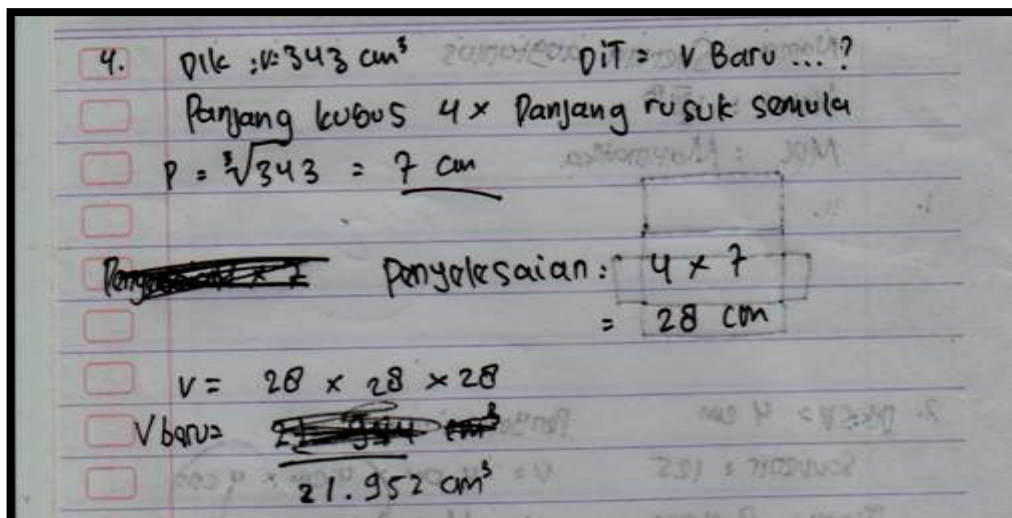 4. Dik : V= 343 cm³ DiT = V Baru ...?
Panjang kubus 4 x Panjang rusuk semula
P = ³√343 = 7 cm
Penyelesaian : 4 x 7
= 28 cm
V = 28 x 28 x 28
V baru =
21.952 cm³